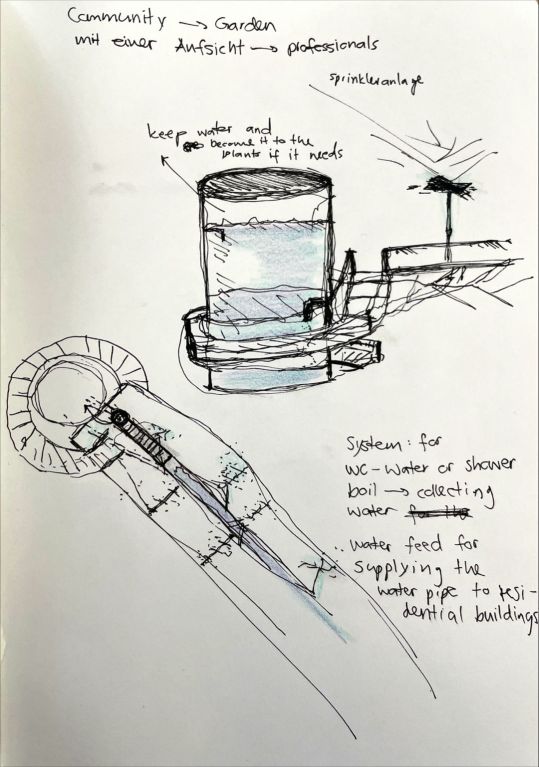 Community → Garden
mit einer Aufsicht → professionals
sprinkleranlage
keep water and
become it to the
plants if it needs
System: for
WC-Water or shower
boil → collecting
water
water feed for
supplying the
water pipe to resi-
dential buildings